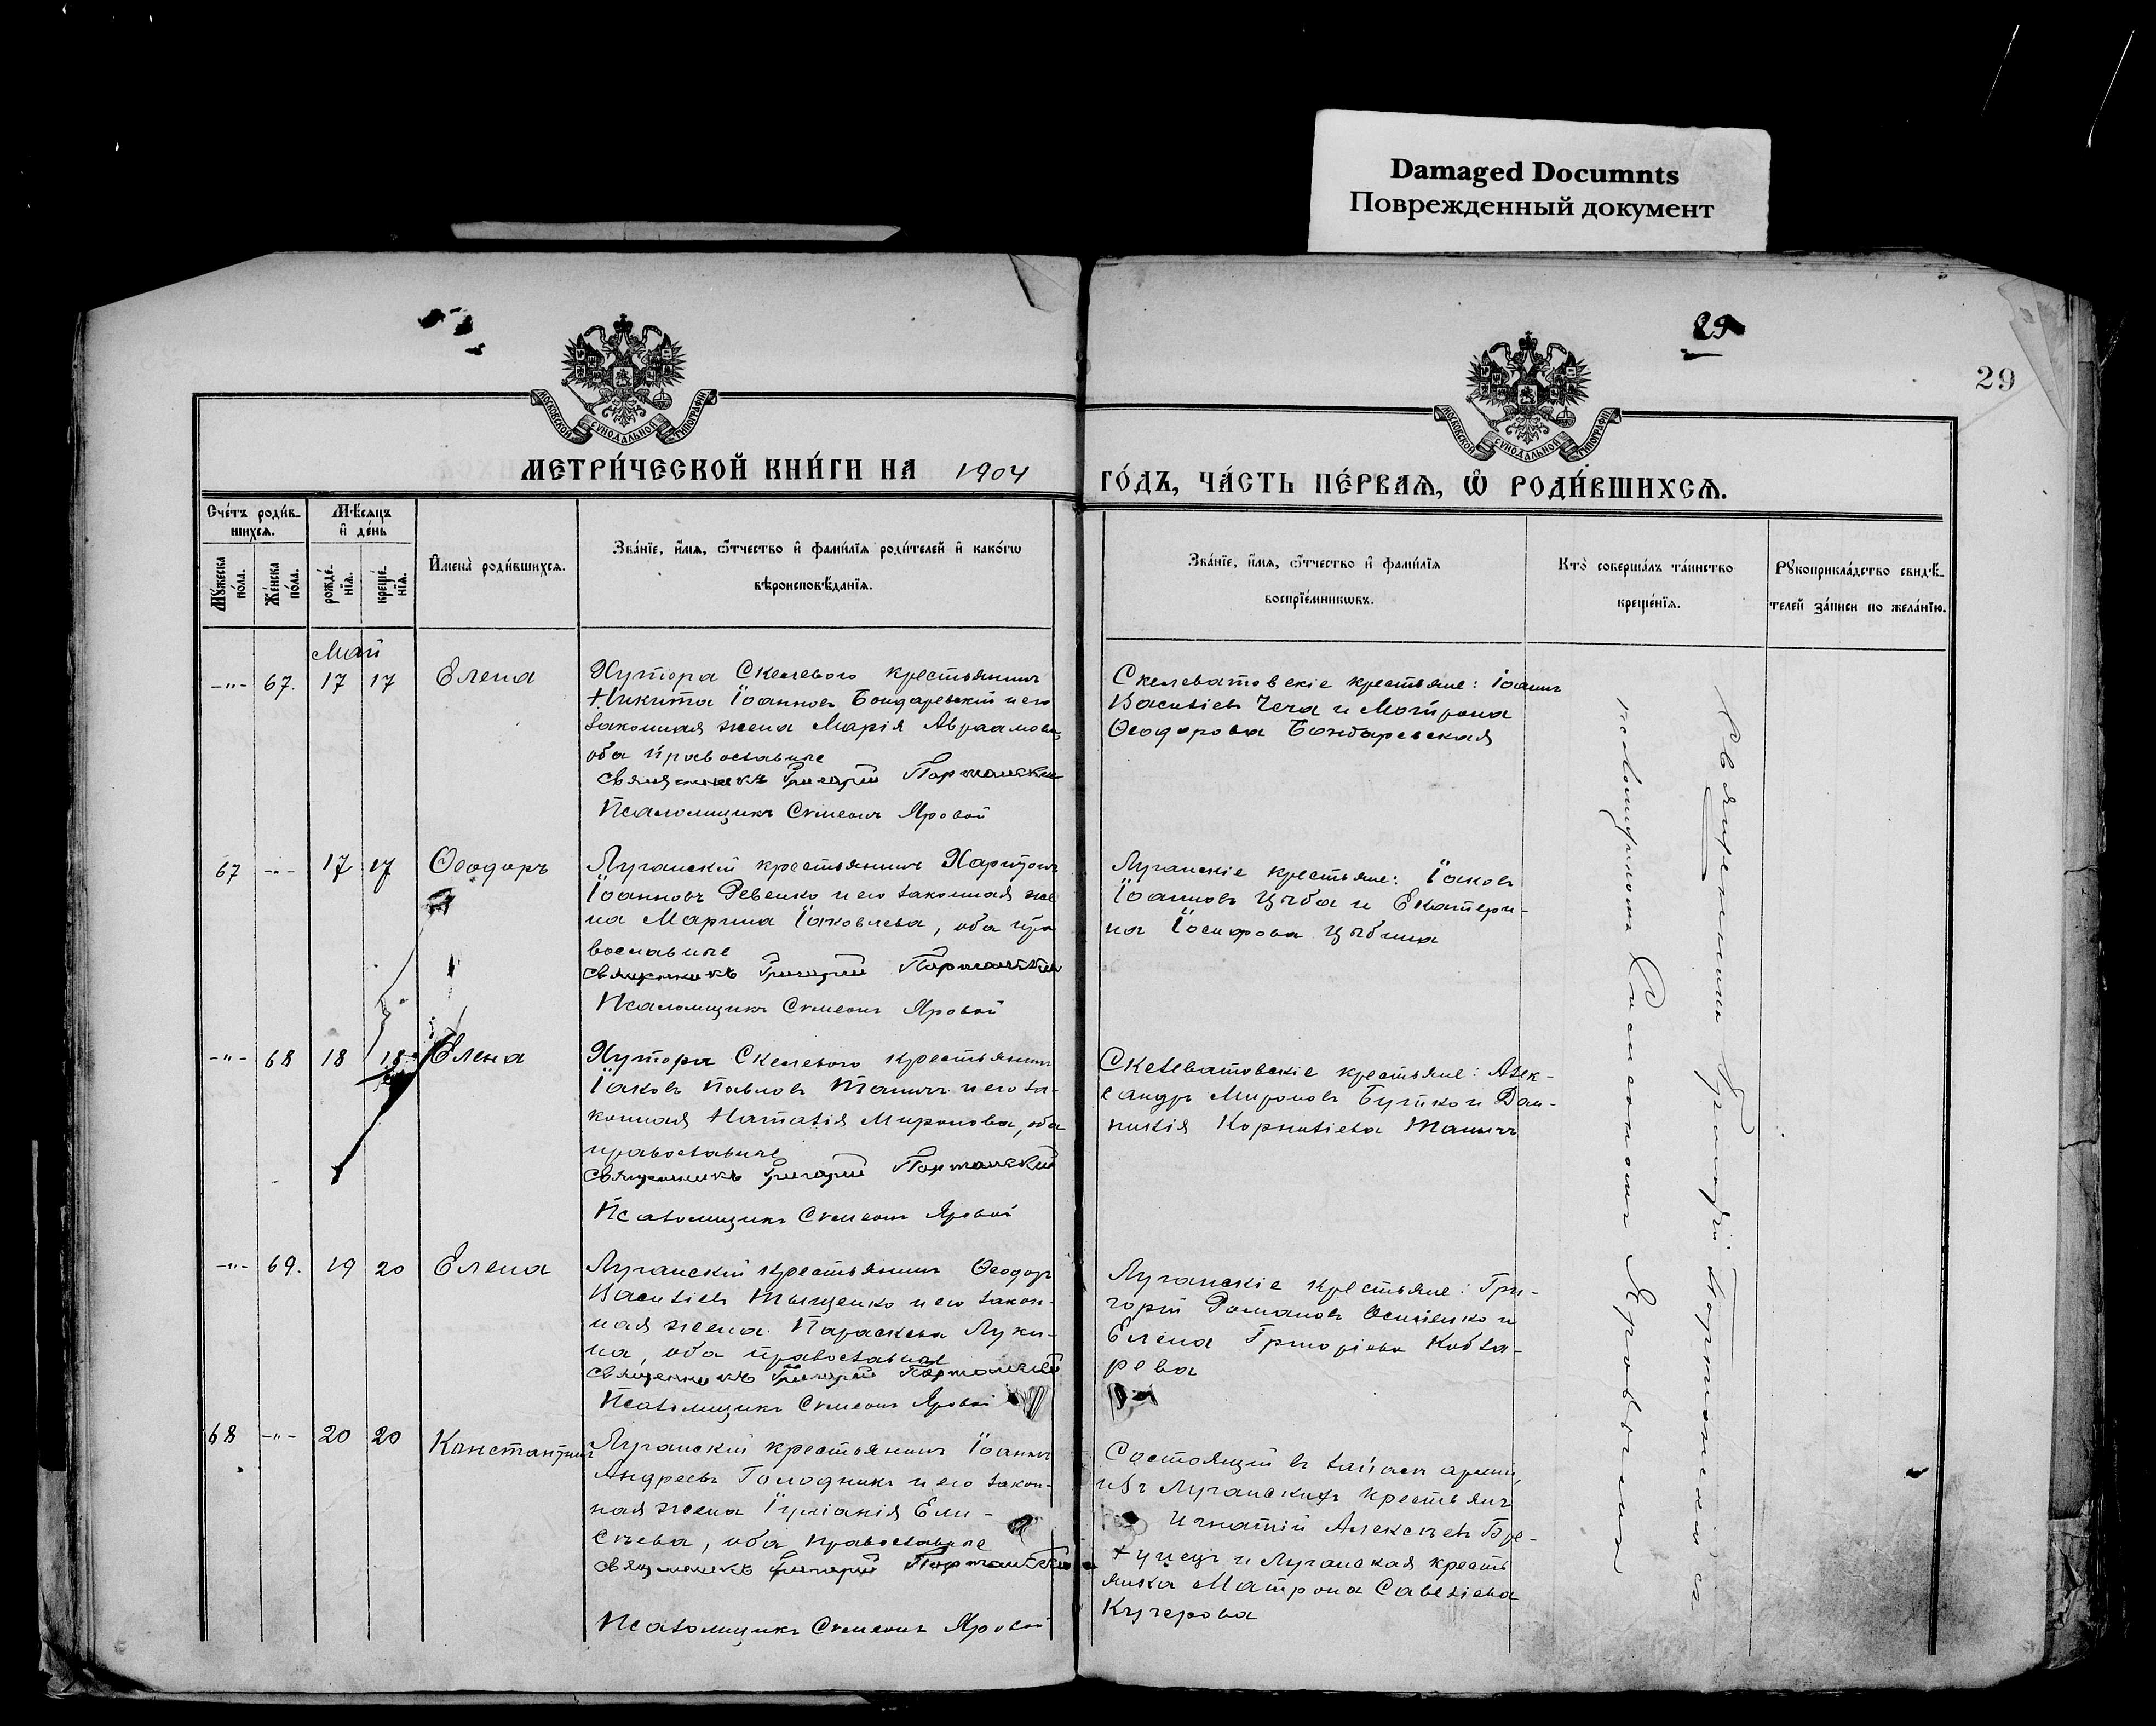 Damaged Documnts
Поврежденный документ
29
29
МОСКОВСКОЙ СУНОДАЛЬНОЙ ТИПОГРАФІИ
МОСКОВСКОЙ СУНОДАЛЬНОЙ ТИПОГРАФІИ
МЕТРИ́ЧЕСКОЙ КНИ́ГИ НА 1904
ГО́ДЪ, ЧА́СТЬ ПЕ́РВАѦ, Ѡ҆ РОДИ́ВШИХСѦ.
Сче́тъ роди́в-
шихсѧ.
Мѣ́сѧцъ
и҆ де́нь
Мꙋ́жеска по́ла.
Же́нска по́ла.
рожде́нїѧ.
креще́нїѧ.
И҆мена̀ роди́вшихсѧ.
Зва́нїе, и҆́мѧ, ѻ҆́тчество и҆ фами́лїѧ роди́телей и҆ како́гѡ
вѣроисповѣ́данїѧ.
Зва́нїе, и҆́мѧ, ѻ҆́тчество и҆ фами́лїѧ
воспрїе́мникѡвъ.
Кто̀ соверша́лъ та́инство
креще́нїѧ.
Рꙋкоприкла́дство свидѣ́-
телей за́писи по жела́нїю.
Май
-"- 67. 17 17 Елена
Хутора Скелевого крестьянинъ
Никита Іоанновъ Бондаревскій и его
законная жена Марія Авраамова,
оба православные
Священникъ Григорій Портанскій
Псаломщикъ Сумеонъ Яровой
Скелеватовскіе крестьяне: Іоаннъ
Васильевъ Чеча и Мотрона
Ѳеодорова Бондаревская
67 -"- 17 17 Ѳеодоръ
Луганскій крестьянинъ Харитонъ
Іоанновъ Ревенко и его законная же
на Марина Іаковлева, оба пра
вославные
Священникъ Григорій Портанскій
Псаломщикъ Сумеонъ Яровой
Луганскіе крестьяне: Іаковъ
Іоанновъ Цыба и Екатери-
на Іосифова Цыбина
-"- 68 18 18 Елена
Хутора Скелевого крестьянинъ
Іаковъ Павловъ Танчъ и его за-
конная Наталія Миронова, оба
православные
Священникъ Григорій Портанскій
Псаломщикъ Сумеонъ Яровой
Скелеватовскіе крестьяне: Алек-
сандръ Мироновъ Бутко и
Корниліева
-"- 69. 19 20 Елена
Луганскій крестьянинъ Ѳеодоръ
Васильевъ Тыщенко и его закон-
ная жена Параскева Луки-
на, оба православные
Священникъ Григорій Портанскій
Псаломщикъ Сумеонъ Яровой
Луганскіе крестьяне: Гри-
горій Романовъ Осипенко и
Елена Григоріева Кобза-
рева
68 -"- 20 20 Константинъ
Луганскій крестьянинъ Іоаннъ
Андреевъ Голодникъ и его закон-
ная жена Іуліанія Ели-
сѣева, оба православные
Священникъ Григорій Портанскій
Псаломщикъ Сумеонъ Яровой
Состоящій въ запасѣ арміи,
изъ Луганскихъ крестьянъ
Игнатій Алексѣевъ
и Луганская кресть
янка Матрона Савеліева
Кучерова
Священникъ Григорій Портанскій съ
псаломщикомъ Сумеономъ Яровымъ